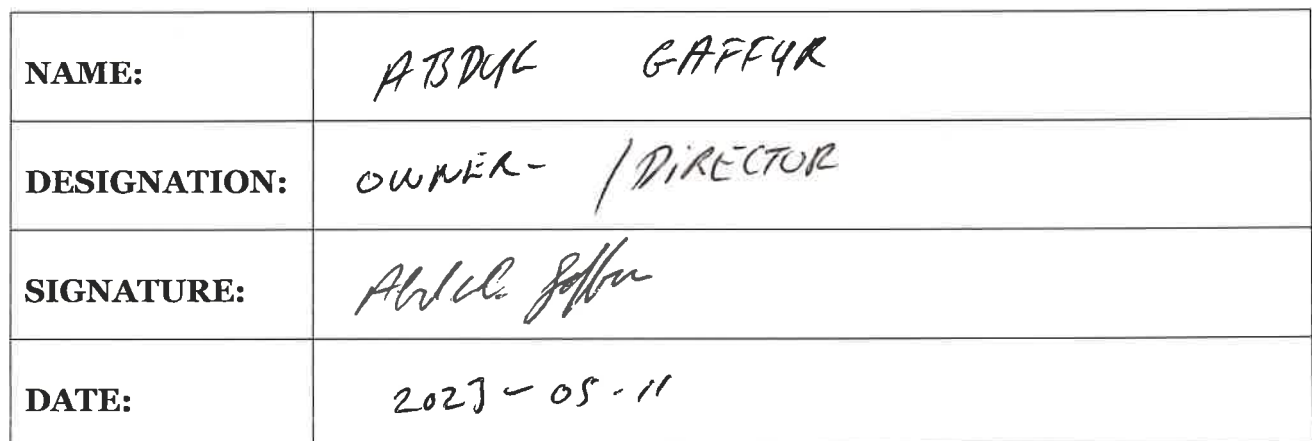 NAME: ABDUL GAFFUR
DESIGNATION: OWNER- / DiRECTOR
SIGNATURE: Abdul Gaffur
DATE: 2023-05-11